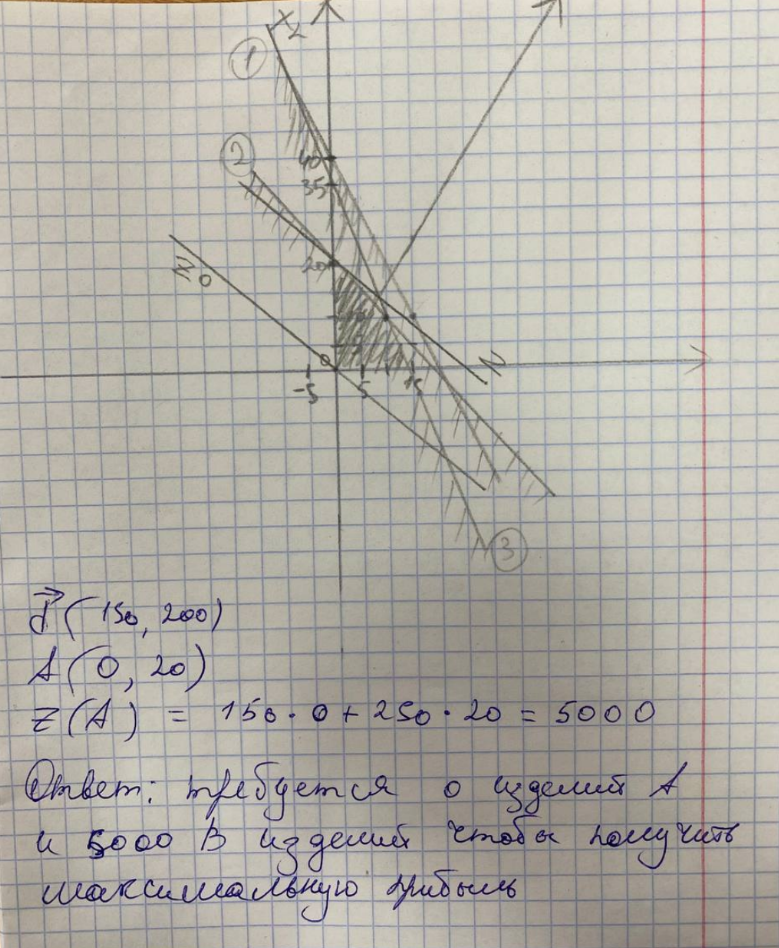 x₂
1
40
35
2
Z₀
20
10
5
0
-5 5 15
N
3
d⃗(150, 200)
A(0, 20)
Z(A) = 150 · 0 + 250 · 20 = 5000
Ответ: требуется 0 изделий А
и 5000 В изделий чтобы получить
максимальную прибыль